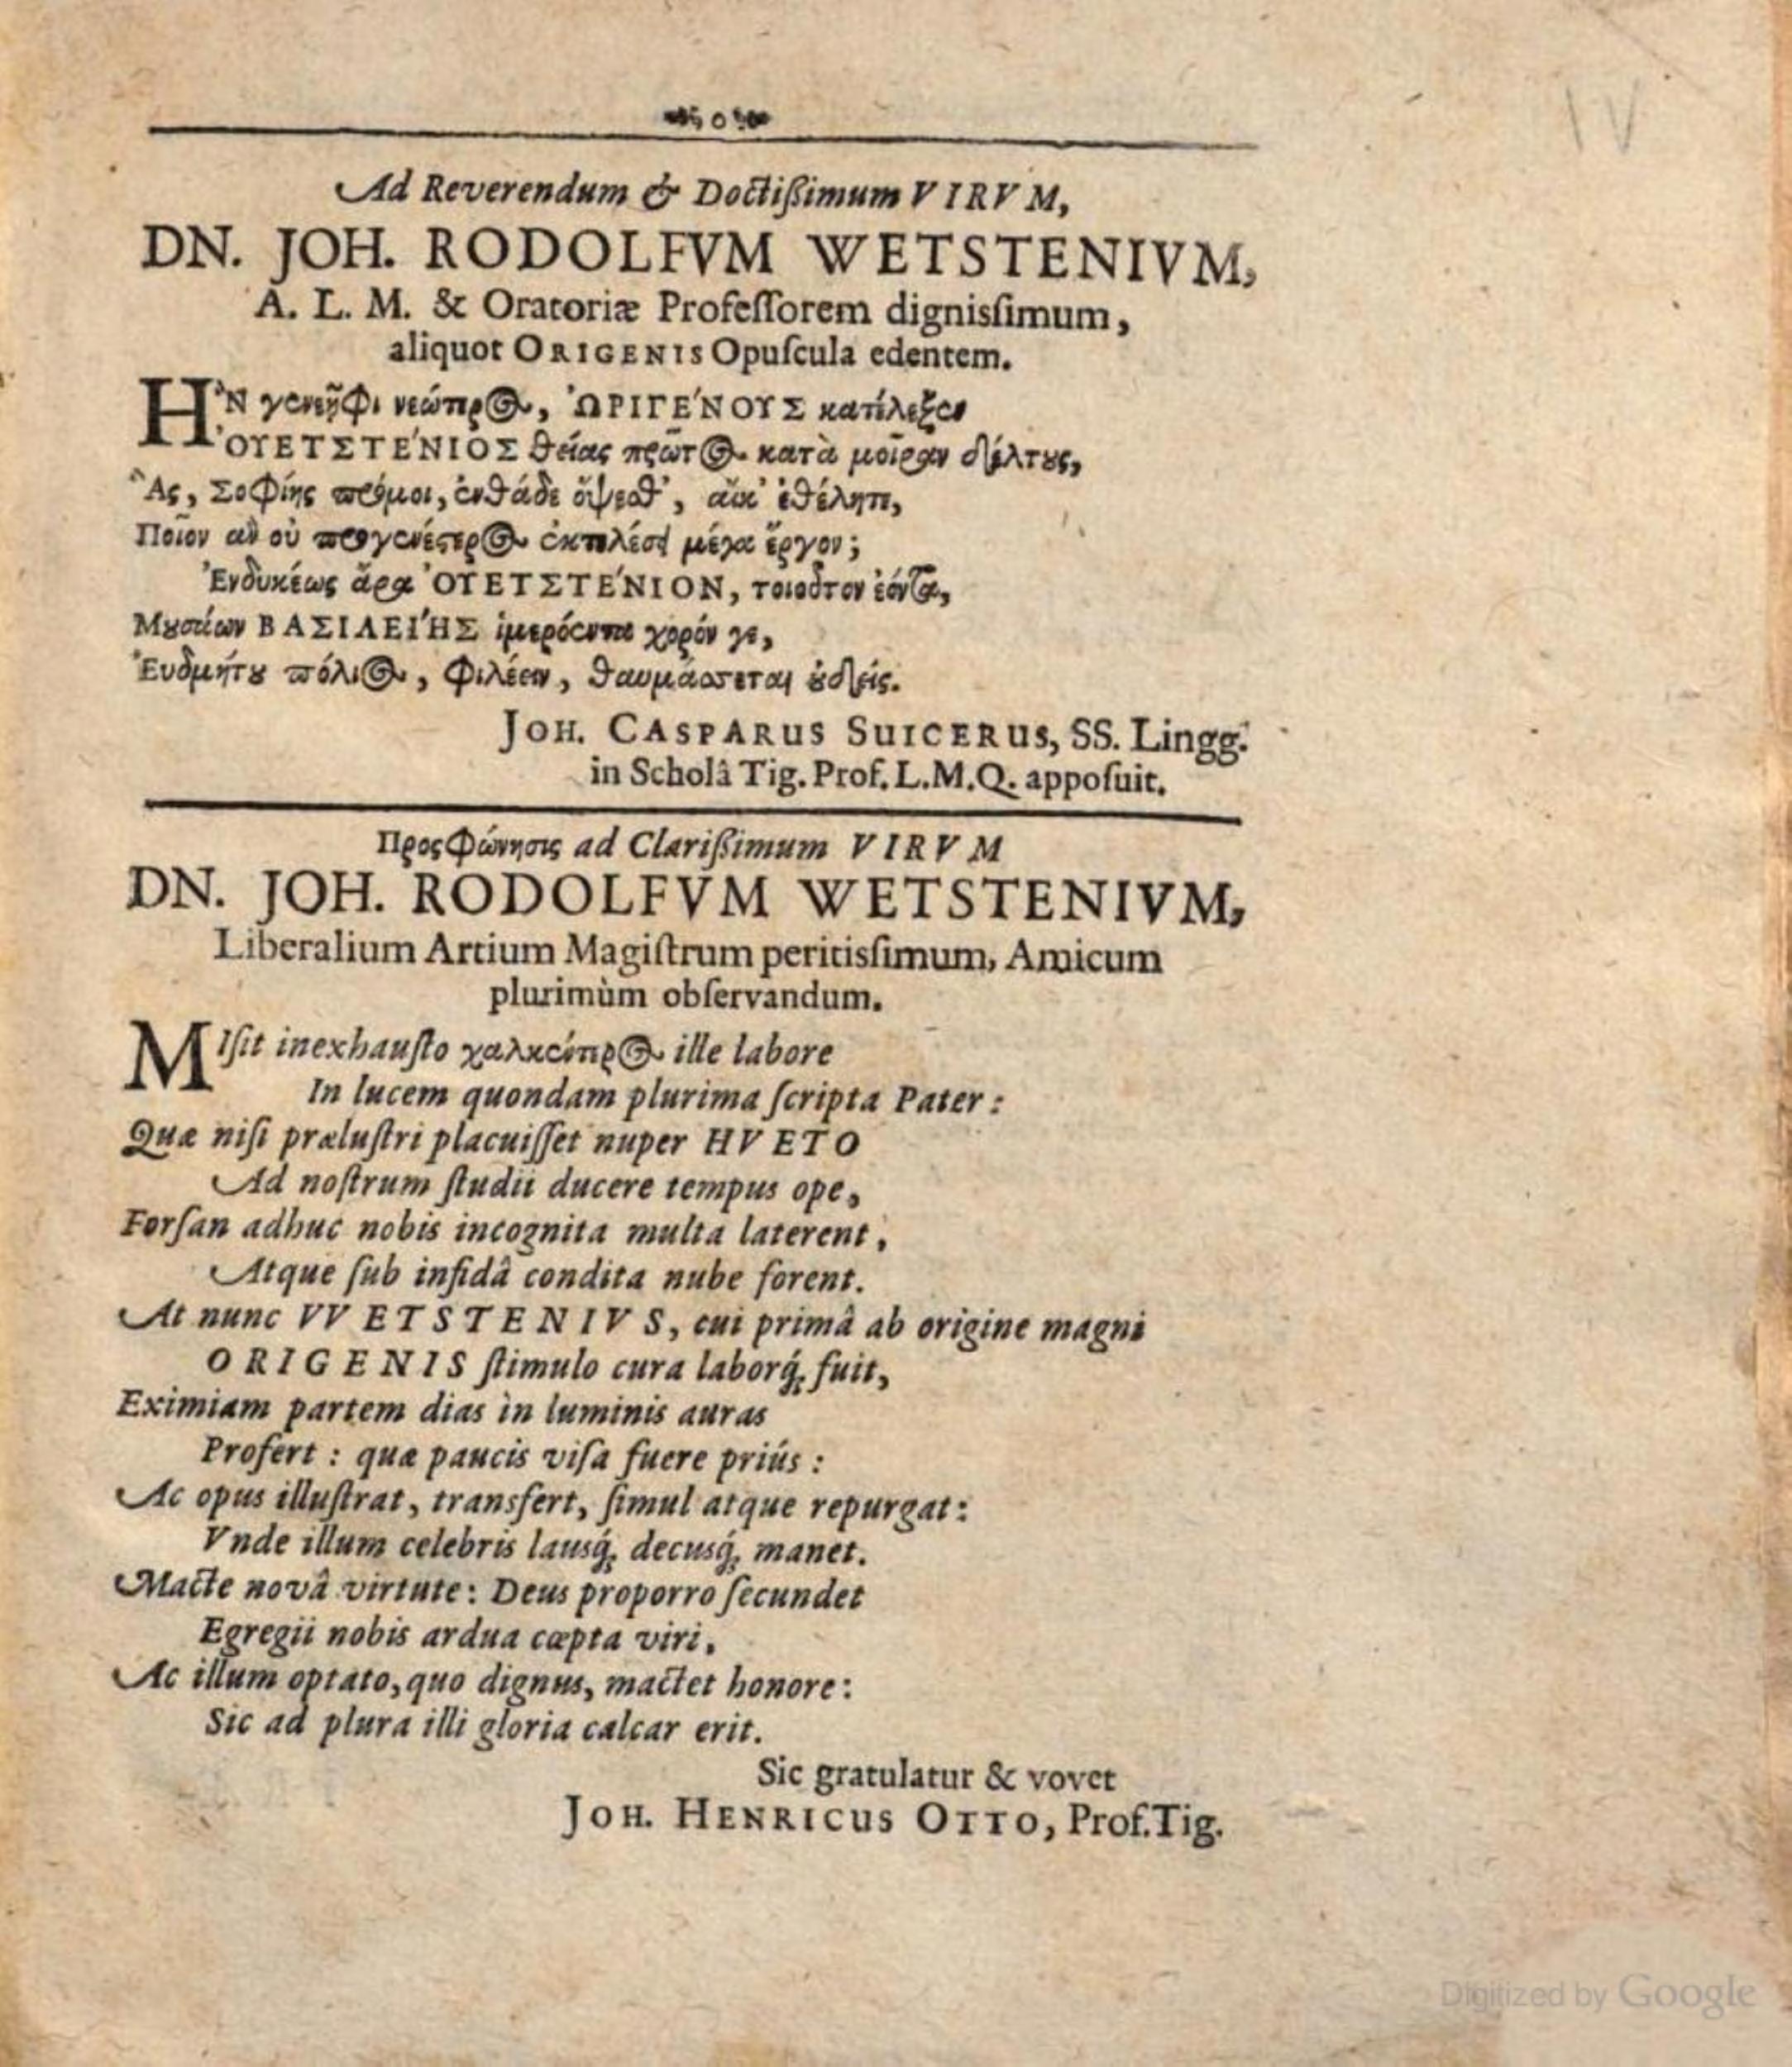 Ad Reverendum & Doctißimum VIRVM,
DN. JOH. RODOLFVM WETSTENIVM,
A. L. M. & Oratoriæ Profeſſorem digniſſimum,
aliquot ORIGENIS Opuſcula edentem.
ἪΝ γενεῆφι νεώτερος, ὨΡΙΓΕΝΟΥΣ κατέλεξεν
ὈΥΕΤΣΤΕΝΙΟΣ θείας πρῶτος κατὰ μοῖραν δέλτους,
Ἃς, Σοφίης πρόμοι, ἐνθάδε ὄψεσθ', αἴκ' ἐθέλητε,
Ποῖον ἂν οὐ προγενέστερος ἐκτελέσῃ μέγα ἔργον;
Ἐνδυκέως ἄρα ὈΥΕΤΣΤΕΝΙΟΝ, τοιοῦτον ἐόντα,
Μουσάων ΒΑΣΙΛΕΙΗΣ ἱμερόεντα χορόν γε,
Ἐυδμήτου πόλιος, φιλέειν, θαυμάσσεται οὐδείς.
JOH. CASPARUS SUICERUS, SS. Lingg.
in Scholâ Tig. Prof. L.M.Q. appoſuit.
Προςφώνησις ad Clarißimum VIRVM
DN. JOH. RODOLFVM WETSTENIVM,
Liberalium Artium Magiſtrum peritiſſimum, Amicum
plurimùm obſervandum.
MIſit inexhauſto χαλκέντερος ille labore
In lucem quondam plurima ſcripta Pater:
Quæ niſi præluſtri placuiſſet nuper HVETO
Ad noſtrum ſtudii ducere tempus ope,
Forſan adhuc nobis incognita multa laterent,
Atque ſub infidâ condita nube forent.
At nunc VVETSTENIVS, cui primâ ab origine magni
ORIGENIS ſtimulo cura laborq́; fuit,
Eximiam partem dias in luminis auras
Profert: quæ paucis viſa fuere priús:
Ac opus illuſtrat, transfert, ſimul atque repurgat:
Vnde illum celebris lausq́; decusq́; manet.
Macte novâ virtute: Deus proporro ſecundet
Egregii nobis ardua cœpta viri,
Ac illum optato, quo dignus, mactet honore:
Sic ad plura illi gloria calcar erit.
Sic gratulatur & vovet
JOH. HENRICUS OTTO, Prof.Tig.
IV
Digitized by Google